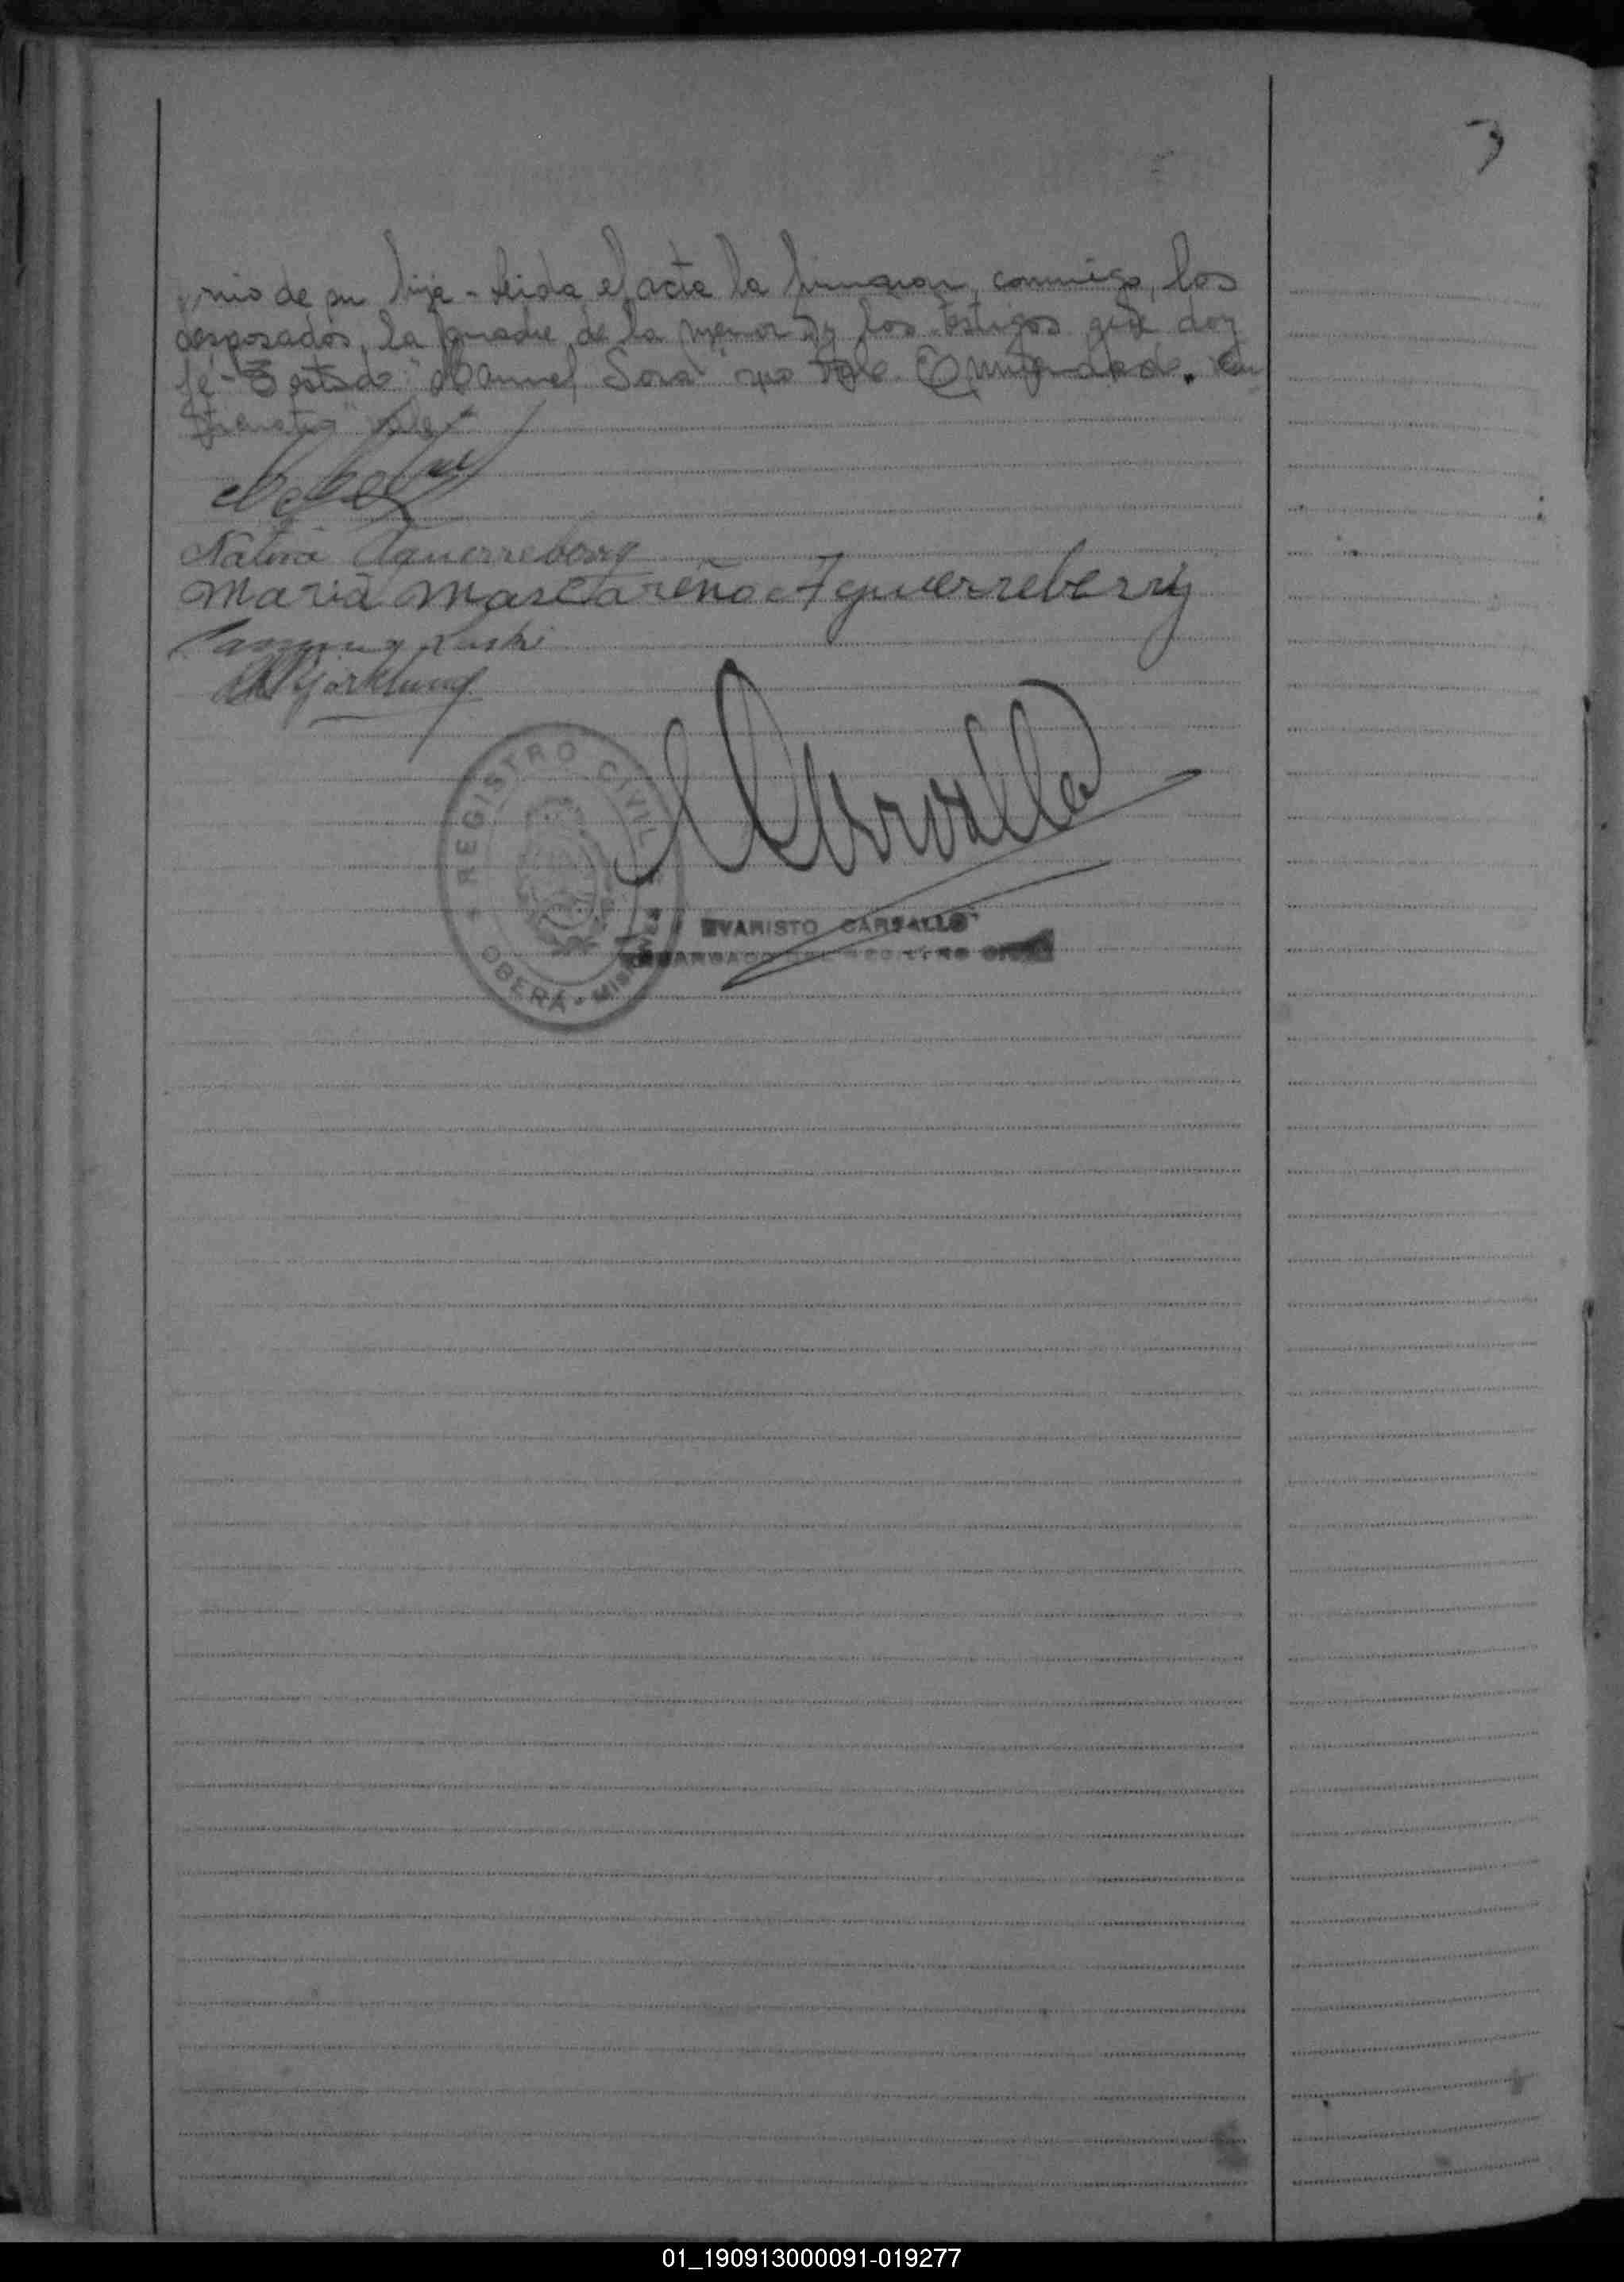 3
nio de su hija - Leida el acta la firmaron conmigo, los
desposados, la madre de la menor y los testigos que doy
fé - Testado "Manuel Sosa" no vale Enmendado.
vale
Natina Aguerreberry
Maria Mascareño Aguerreberry
Björklund
REGISTRO CIVIL
OBERÁ - MISIONES
EVARISTO CARBALLO
ENCARGADO DEL REGISTRO CIVIL
01_190913000091-019277